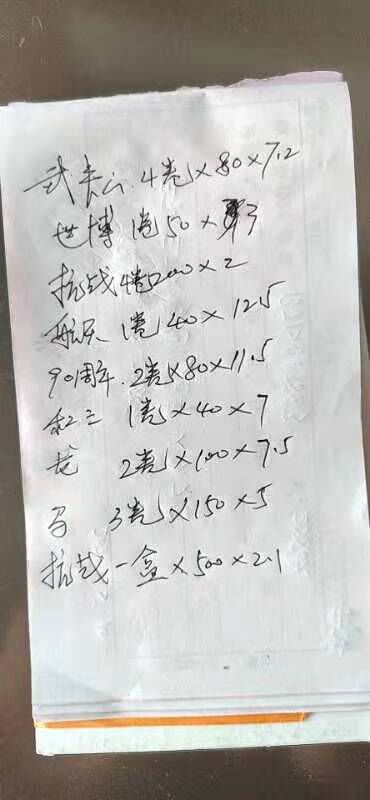 武夷山 4卷×80×7.2
世博 1卷50×3
抗战4卷200×2
航天 1卷40×12.5
90周年.2卷×80×11.5
和三 1卷×40×7
龙 2卷×100×7.5
马 3卷×150×5
抗战一盒×500×2.1